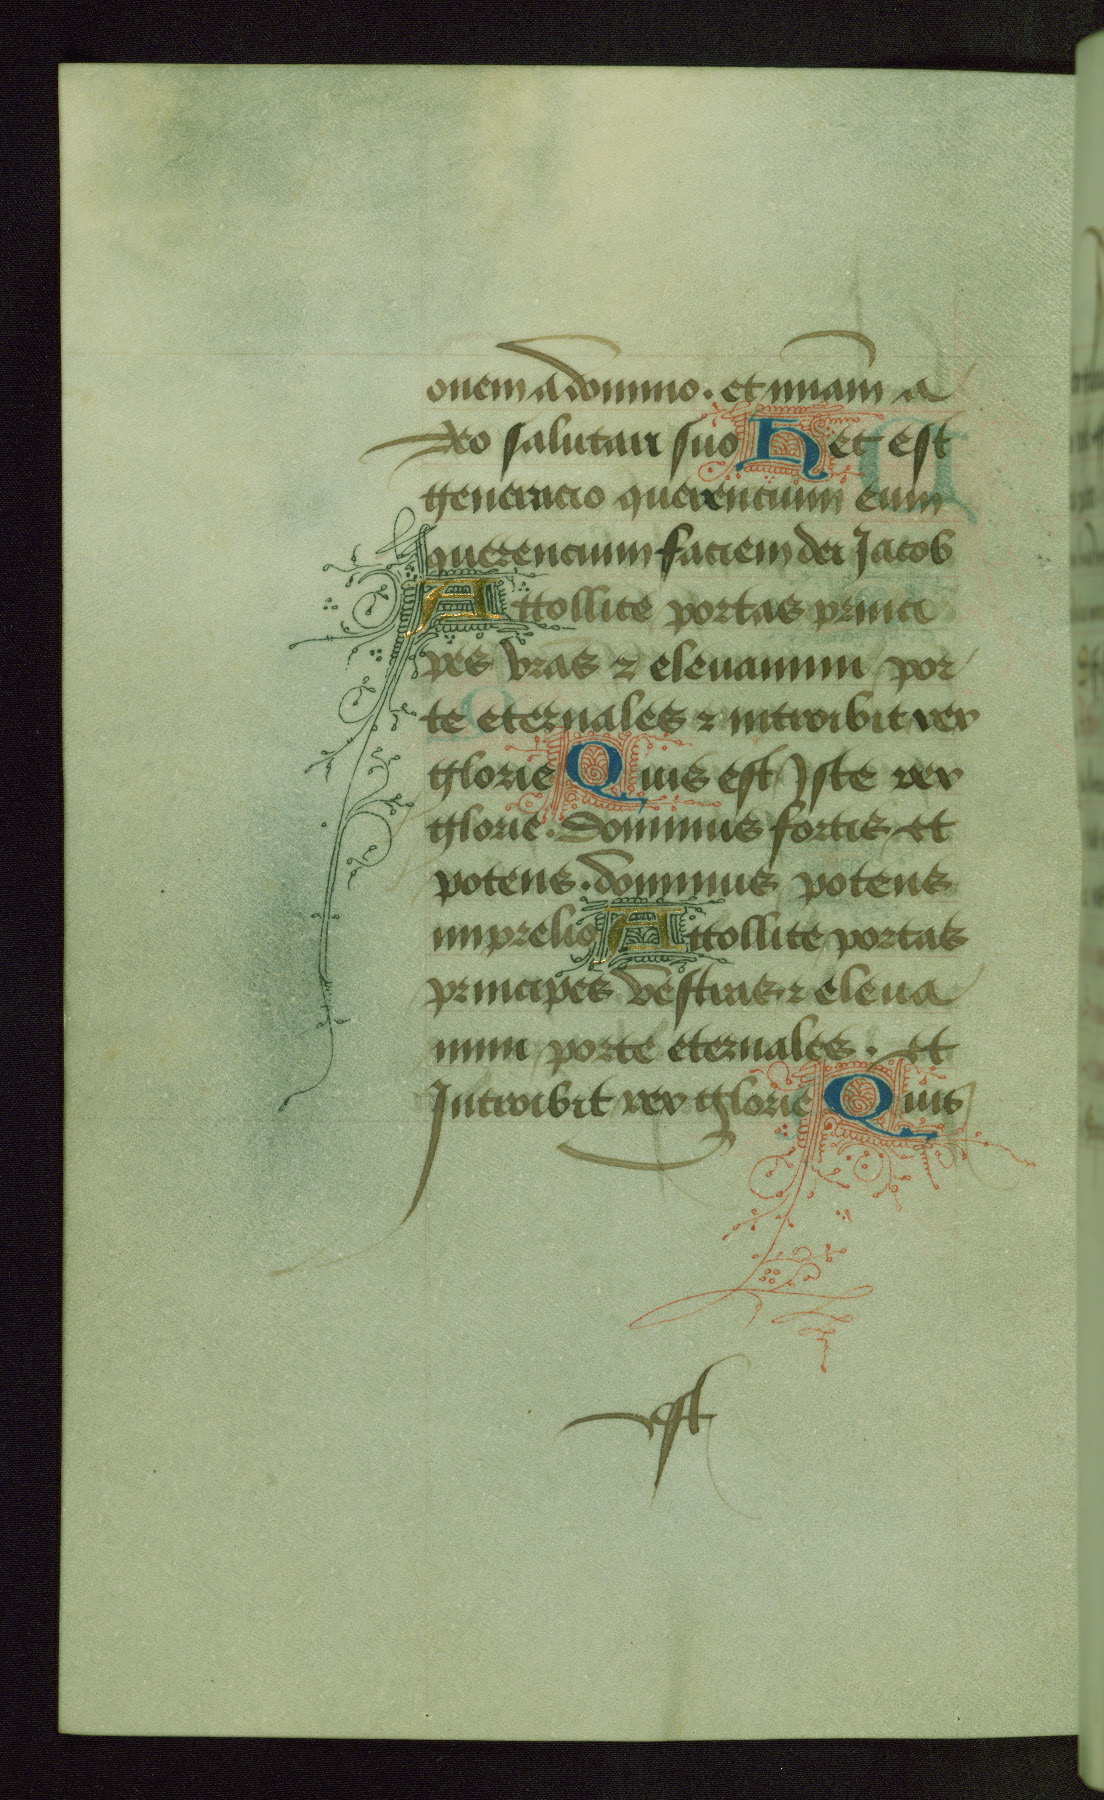 onem a domino. et miam a
deo salutari suo Hec est
generacio querencium eum
querencium faciem dei Jacob
Attollite portas princi
pes vras ⁊ eleuamini por
te eternales ⁊ introibit rex
glorie Quis est Iste rex
glorie. Dominus fortis et
potens. dominus potens
in prelio Attollite portas
principes vestras ⁊ eleua
mini porte eternales. et
Introibit rex glorie Quis
est